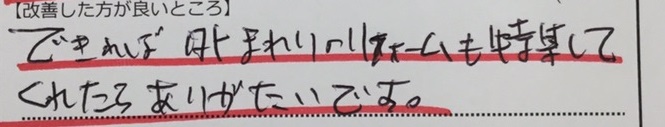 【改善した方が良いところ】
できれば 外まわりのリフォームも特集して
くれたらありがたいです。